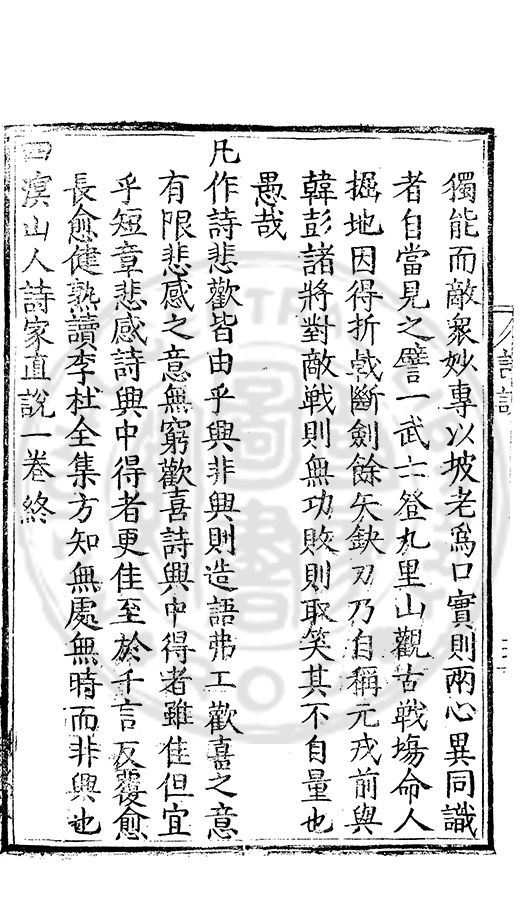 獨能而敵衆妙專以坡老爲口實則兩心異同識
者自當見之譬一武士登九里山觀古戰塲命人
掘地因得折戟斷劍餘矢缺刃乃自稱元戎前與
韓彭諸將對敵戰則無功敗則取笑其不自量也
愚哉
凡作詩悲歡皆由乎興非興則造語弗工歡喜之意
有限悲感之意無窮歡喜詩興中得者雖佳但宜
乎短章悲感詩興中得者更佳至於千言反覆愈
長愈健熟讀李杜全集方知無處無時而非興也
四溟山人詩家直說一卷終